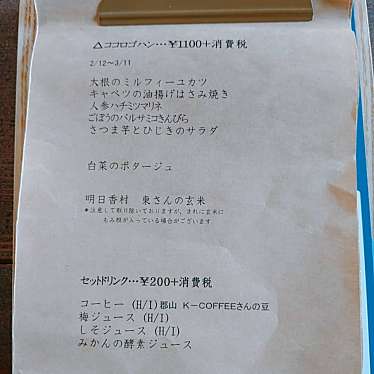 △ココロゴハン…¥1100+消費税
2/12～3/11
大根のミルフィーユカツ
キャベツの油揚げはさみ焼き
人参ハチミツマリネ
ごぼうのバルサミコきんぴら
さつま芋とひじきのサラダ
白菜のポタージュ
明日香村 東さんの玄米
*注意して取り除いておりますが、まれに玄米に
もみ殻が入っている場合がございます
セットドリンク…¥200+消費税
コーヒー (H/I) 郡山 K-COFFEEさんの豆
梅ジュース (H/I)
しそジュース (H/I)
みかんの酵素ジュース